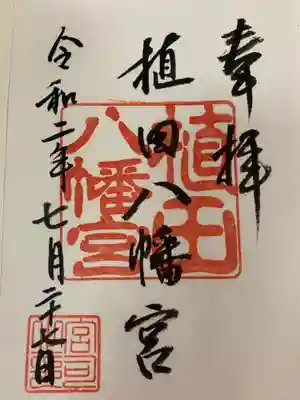 奉拝
植田八幡宮
令和二年七月二十七日
植田
八幡宮
宮司